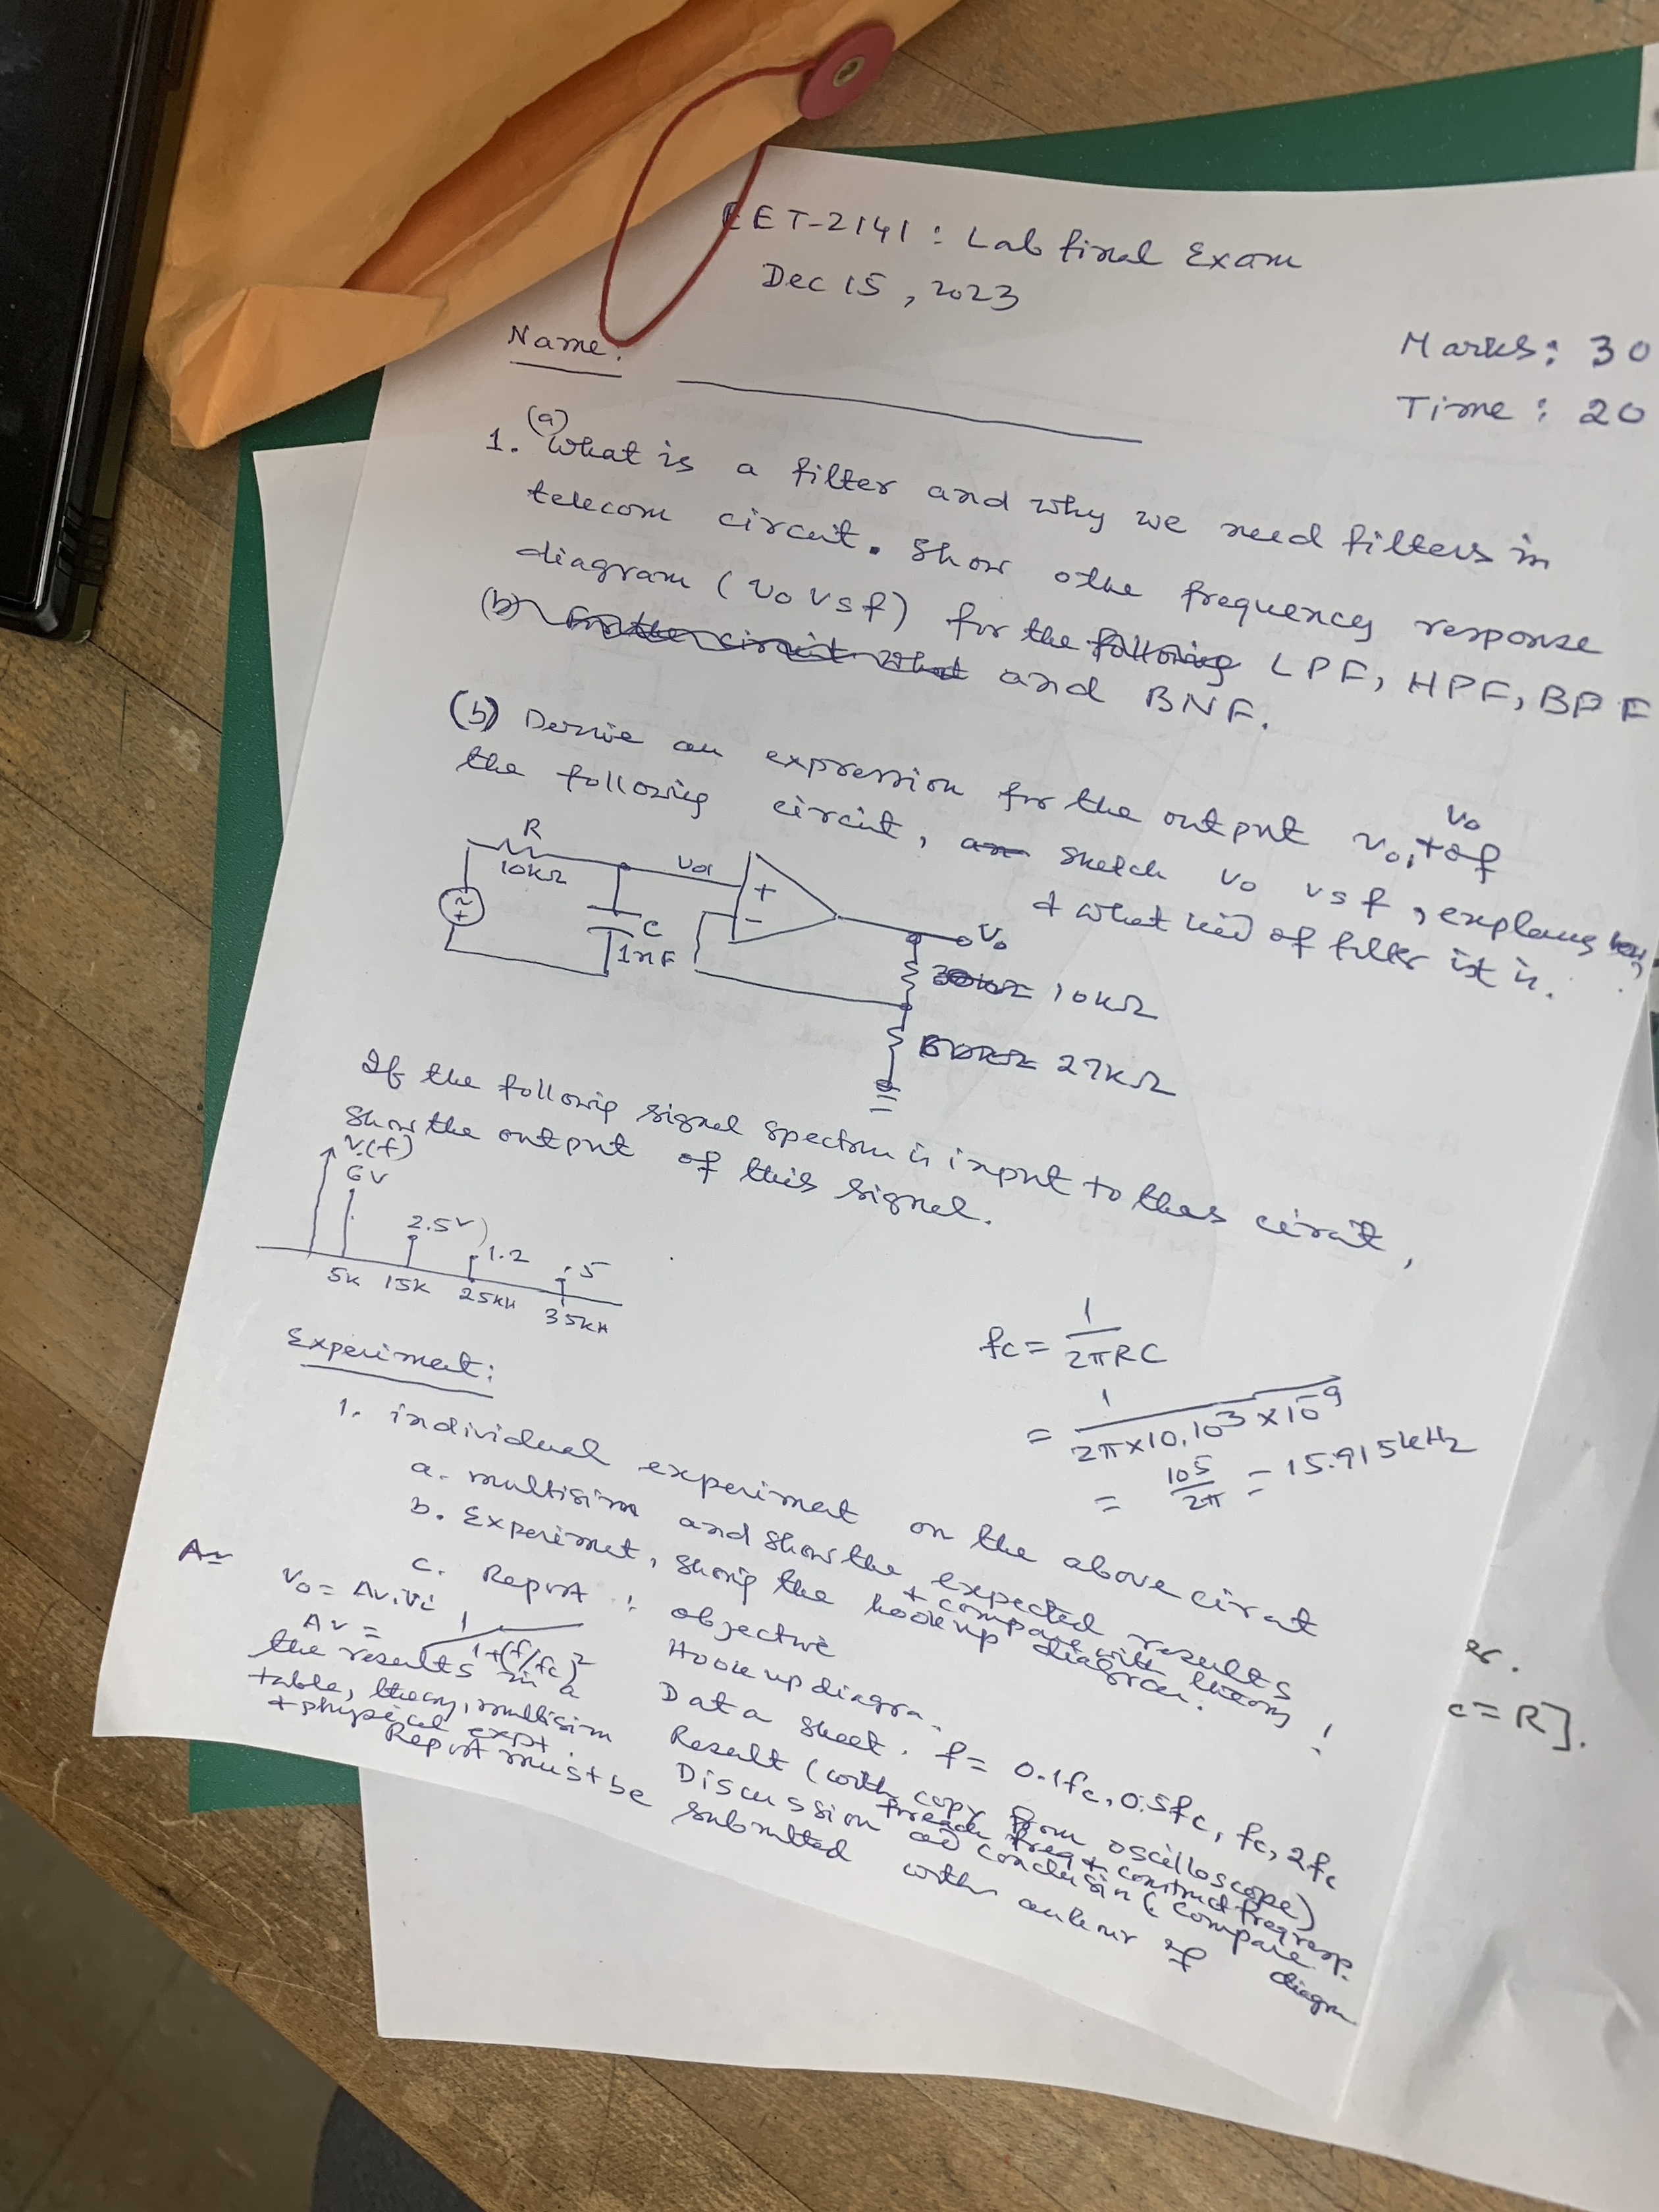 EET-2141 : Lab final Exam
Dec 15, 2023
Name:
Marks: 30
Time: 20
(a)
1. What is a filter and why we need filters in
telecom circuit. Show othe frequency response
diagram (Vo vs f) for the following LPF, HPF, BPF
(b) For the circuit what and BNF.
(b) Derive an expression for the output vo, + of
Vo
the following circuit, an sketch Vo vs f, explains
& what kid of filter ist is.
R
10kΩ
Vo1
+
-
C
1nF
Vo
10kΩ
27kΩ
If the followig signal spectrum is input to thes cirait,
Show the output of this signal.
V.(f)
6V
2.5V
1.2
.5
5K 15K 25KH 35KH
fc = 1
2πRC
= 1
2π×10.10³×10⁻⁹
= 10⁵ = 15.915kHz
2π
Experiment:
1. individual experiment on the above cirat
a. multisim and show the expected results
+ compare with theory !
b. Experimet, shoig the hookup diagram.
c. Report : objective
Hookup diagra.
Data sheet. f= 0.1fc, 0.5fc, fc, 2fc
Result (with copy from oscilloscope)
freach freq & construct freq resp.
Discussion ad conclusin (compare
A=
Vo = Av.Vi
Av = 1
1+(f/fc)²
the results in a
table, theory, multisim
+ physical expt.
Report must be submitted with of diagra
er.
c=R].